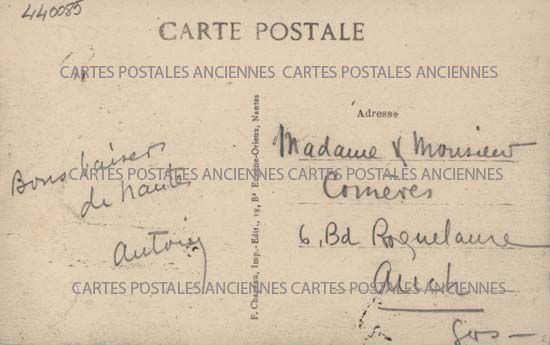 440085
CARTE POSTALE
CARTES POSTALES ANCIENNES CARTES POSTALES ANCIENNES
Adresse
Bons baisers
de Nantes
Antoine
F. Chapeau, Imp.-Edit., 19, Bd Etienne-Orieux, Nantes
Madame & Monsieur
CARTES POSTALES ANCIENNES CARTES POSTALES ANCIENNES
6, Bd Roquelaure
Auch
CARTES POSTALES ANCIENNES CARTES POSTALES ANCIENNES
Gers